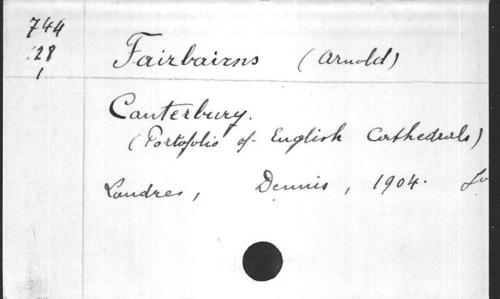 744
28
1
Fairbairns (Arnold)
Canterbury.
(Portofolio of English Cathedrals)
Londres, Dennis, 1904. fo